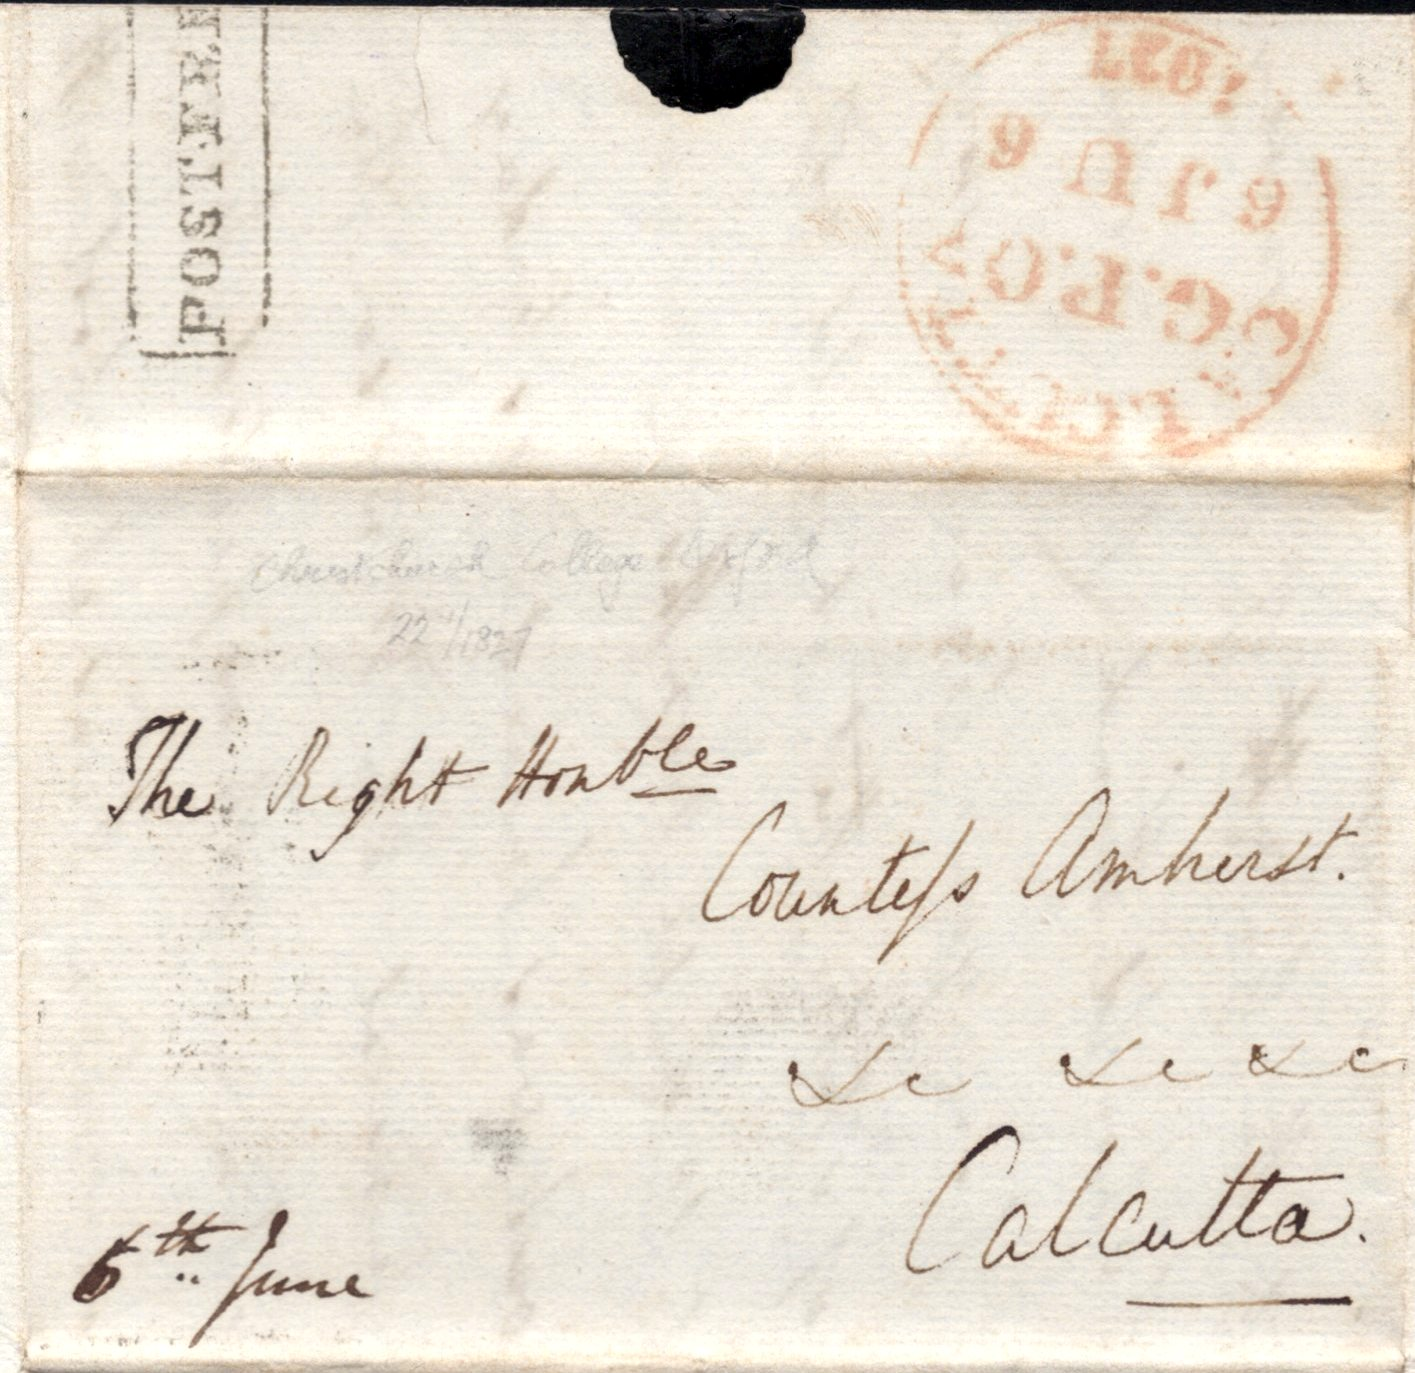 POST FREE
1827
6 JU 6
G.P.O.
Christchurch College Oxford
22 /1827
The Right Honble
Countess Amherst.
&c &c &c
Calcutta.
6th June